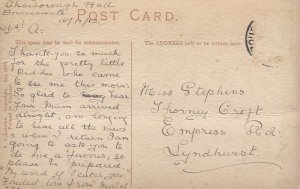 Gharborough Hall
Bournemouth
POST CARD.
This space may be used for communication.
The ADDRESS only to be written here.
Thank you so much
for the pretty little
kiddie who came
to see me this morn.
So glad to hear
Your Mum arrived
alright, am longing
to hear all the news
when I return. I am
going to ask you to
do me a favour, so
please be prepared
My word if
Fondest love from Mabel
Miss Stephens
Thorney Croft
Empress Rd.
Lyndhurst